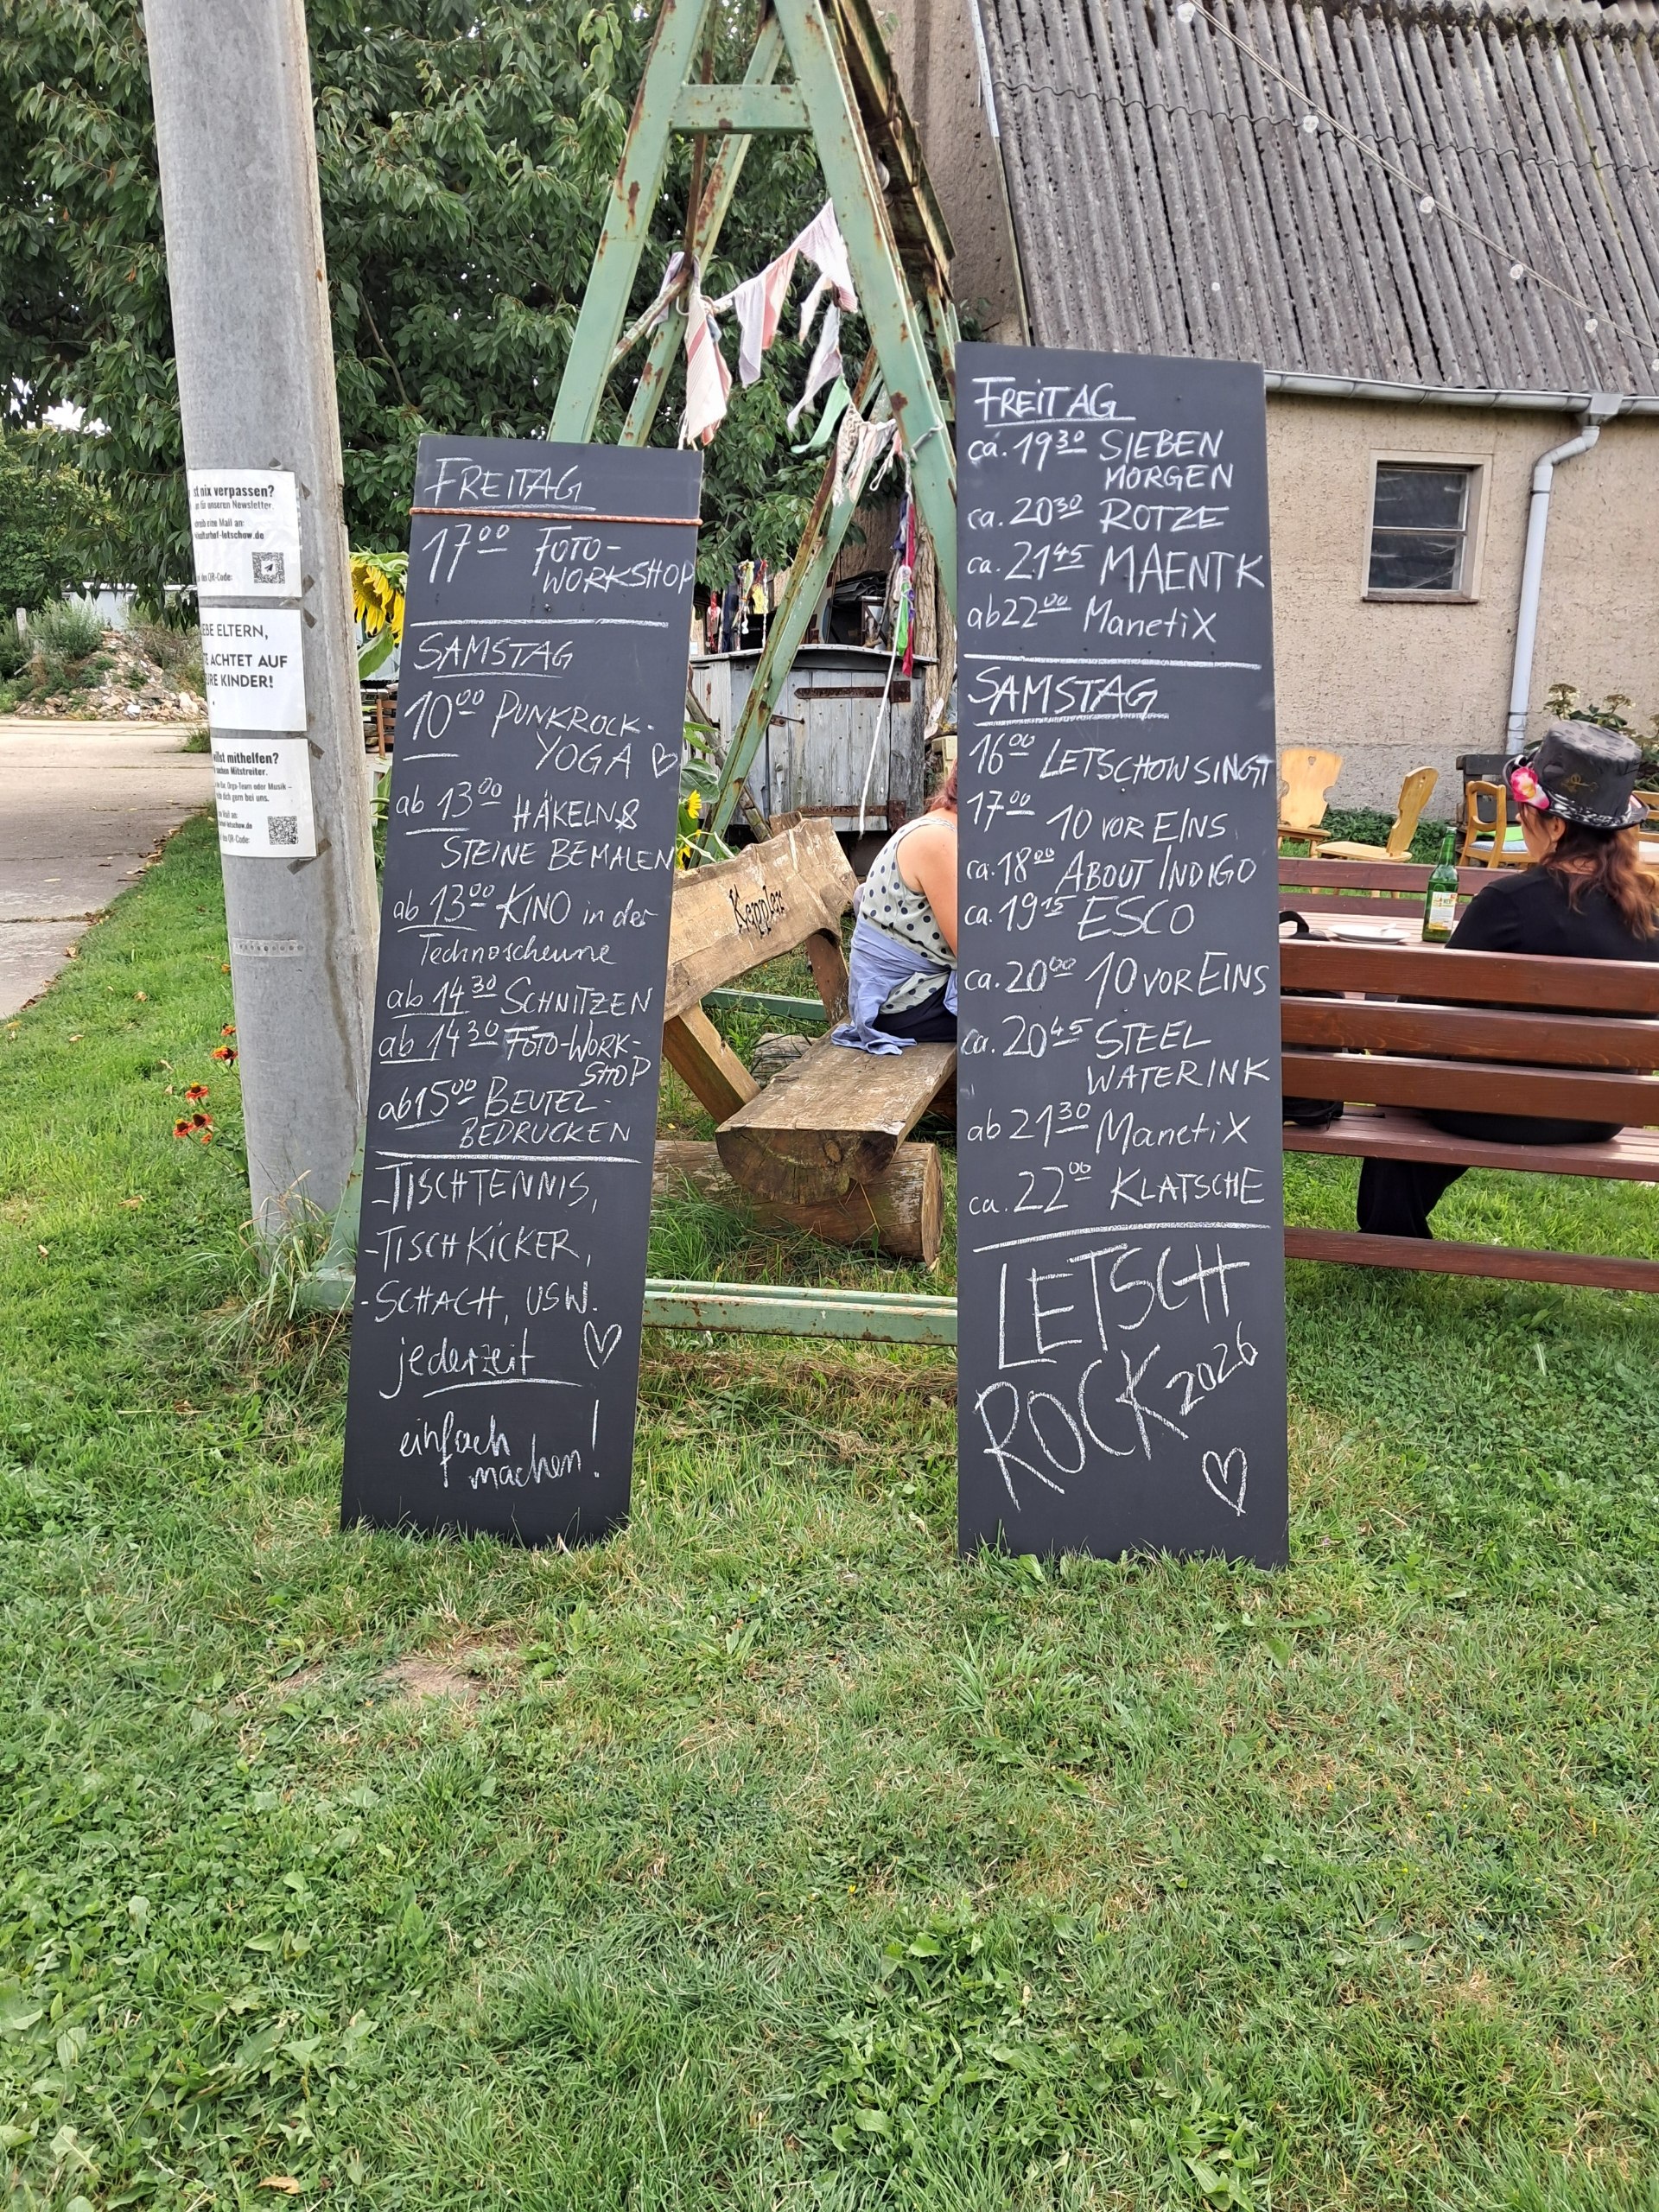 st nix verpassen?
für unseren Newsletter.
eine Mail an:
kulturhof-letschow.de
QR-Code:
EBE ELTERN,
TE ACHTET AUF
URE KINDER!
illst mithelfen?
suchen Mitstreiter.
Orga-Team oder Musik –
dich gern bei uns.
Mail an:
QR-Code:
FREITAG
17⁰⁰ FOTO-
WORKSHOP
SAMSTAG
10⁰⁰ PUNKROCK-
YOGA ♡
ab 13⁰⁰ HÄKELN &
STEINE BEMALEN
ab 13⁰⁰ KINO in der
Technoscheune
ab 14³⁰ SCHNITZEN
ab 14³⁰ FOTO-WORK-
SHOP
ab 15⁰⁰ BEUTEL-
BEDRUCKEN
-TISCHTENNIS,
-TISCHKICKER,
-SCHACH, USW.
jederzeit ♡
einfach
machen!
Keppler
FREITAG
ca. 19³⁰ SIEBEN
MORGEN
ca. 20³⁰ ROTZE
ca. 21⁴⁵ MAENTK
ab 22⁰⁰ ManetiX
SAMSTAG
16⁰⁰ LETSCHOW SINGT
17⁰⁰ 10 VOR EINS
ca. 18⁰⁰ ABOUT INDIGO
ca. 19¹⁵ ESCO
ca. 20⁰⁰ 10 VOR EINS
ca. 20⁴⁵ STEEL
WATERINK
ab 21³⁰ ManetiX
ca. 22⁰⁰ KLATSCHE
LETSCH
ROCK 2026
♡